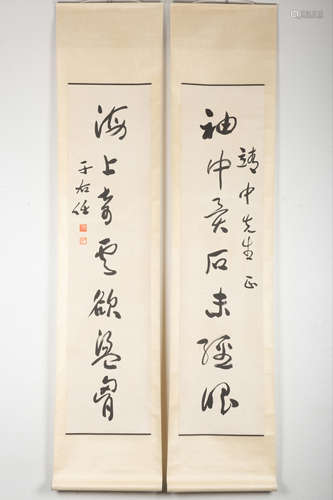 袖中異石未經眼
靖中先生正
海上奇雲欲盪胷
于右任